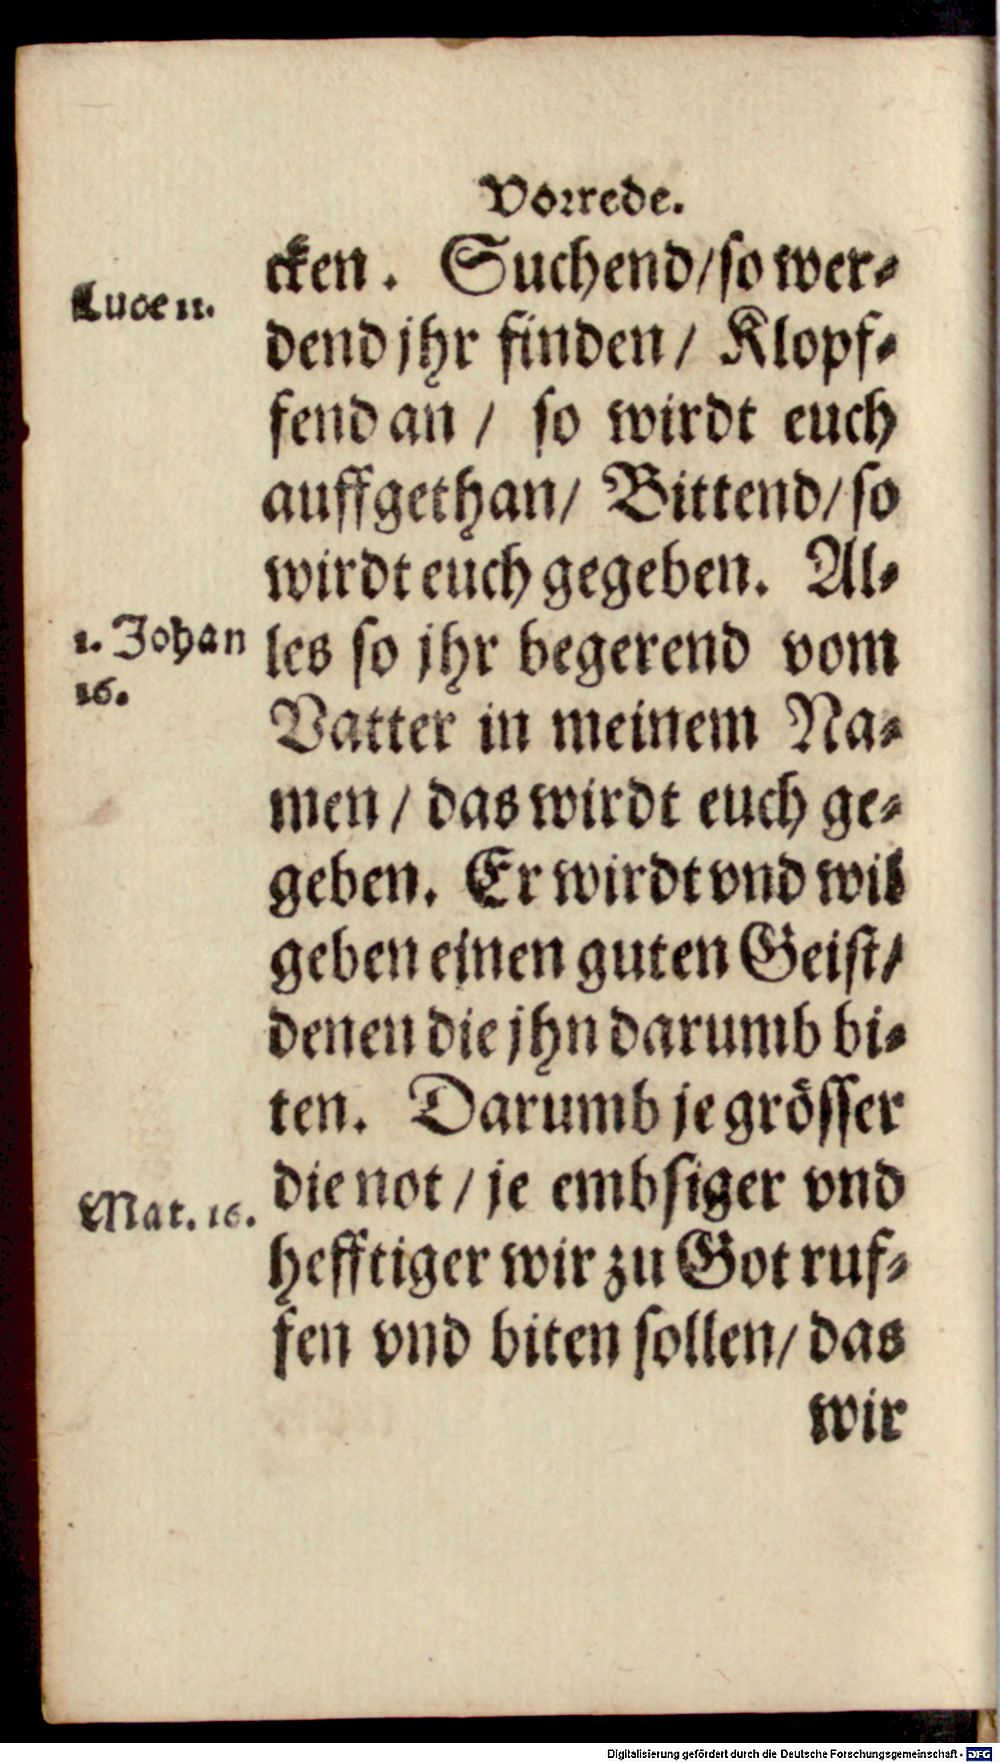 Vorrede.
cken. Suchend/ so wer-
Luce 11.
dend jhr finden/ Klopf-
fend an/ so wirdt euch
auffgethan/ Bittend/ so
wirdt euch gegeben. Al-
1. Johan
16.
les so jhr begerend vom
Vatter in meinem Na-
men/ das wirdt euch ge-
geben. Er wirdt vnd wil
geben einen guten Geist/
denen die jhn darumb bi-
ten. Darumb je grösser
die not/ je embsiger vnd
Mat. 16.
hefftiger wir zu Got ruf-
fen vnd biten sollen/ das
wir
Digitalisierung gefördert durch die Deutsche Forschungsgemeinschaft - DFG